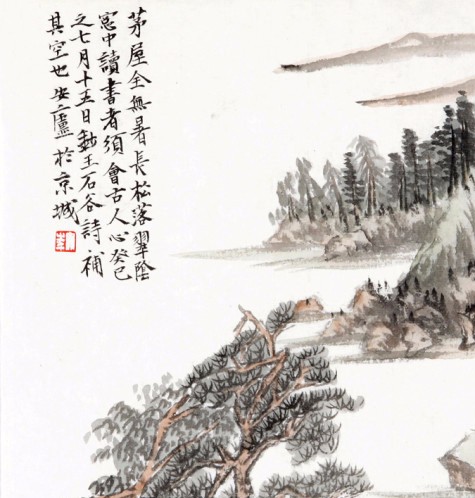 茅屋全無暑長松落翠陰
窓中讀書者須會古人心癸巳
之七月十五日鈔王石谷詩補
其空也安廬於京城